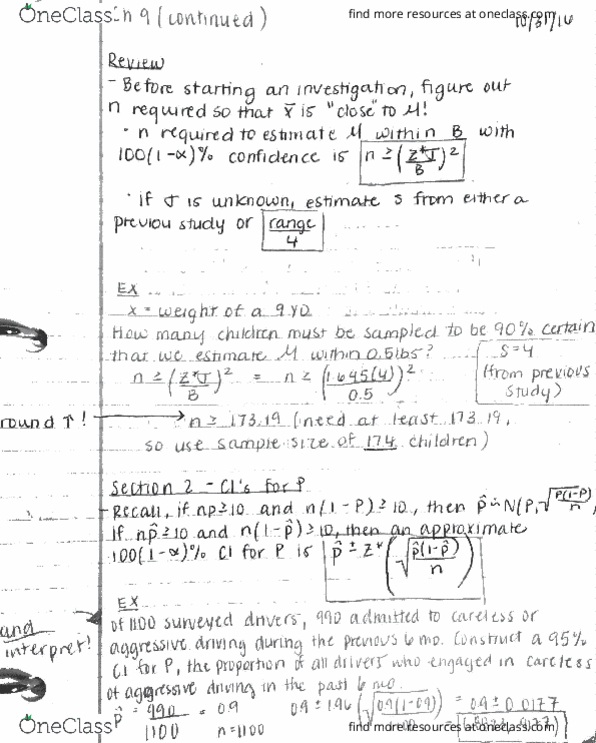 OneClass
find more resources at oneclass.com
n 9 (continued)
10/31/16
Review
- Before starting an investigation, figure out
n required so that x̄ is "close" to μ!
· n required to estimate μ within B with
100(1-α)% confidence is n ≥ (z*σ/B)²
· if σ is unknown, estimate s from either a
previou study or range/4
EX
x = weight of a 9 y.o.
How many children must be sampled to be 90% certain
that we estimate μ within 0.5 lbs?
s=4
(from previous
study)
n ≥ (z*σ/B)² = n ≥ (1.645(4)/0.5)²
round ↑! → n ≥ 173.19 (need at least 173.19,
so use sample size of 174 children)
Section 2 - CI's for P
- Recall, if np ≥ 10 and n(1-P) ≥ 10, then p̂ ~ N(P, √(P(1-P)/n),
If np̂ ≥ 10 and n(1-p̂) ≥ 10, then an approximate
100(1-α)% CI for P is p̂ ± z*(√(p̂(1-p̂)/n))
EX
of 1100 surveyed drivers, 990 admitted to careless or
aggressive driving during the previous 6 mo. Construct a 95%
and
interpret!
CI for P, the proportion of all drivers who engaged in careless
of aggressive driving in the past 6 mo.
p̂ = 990/1100 = 0.9 n=1100 0.9 ± 1.96 (√(0.9(1-0.9) = 0.9 ± 0.0177
OneClass
find more resources at oneclass.com